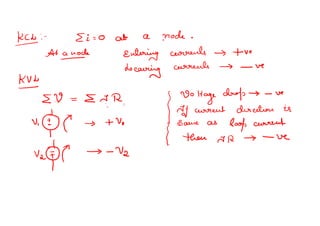 KCL :- Σi = 0 at a node.
At a node Entering currents → +ve
Leaving currents → -ve
KVL
ΣV = ΣIR.
V₁ → +V₁
V₂ → -V₂
Voltage drop → -ve
If current direction is
same as loop current
then IR → -ve